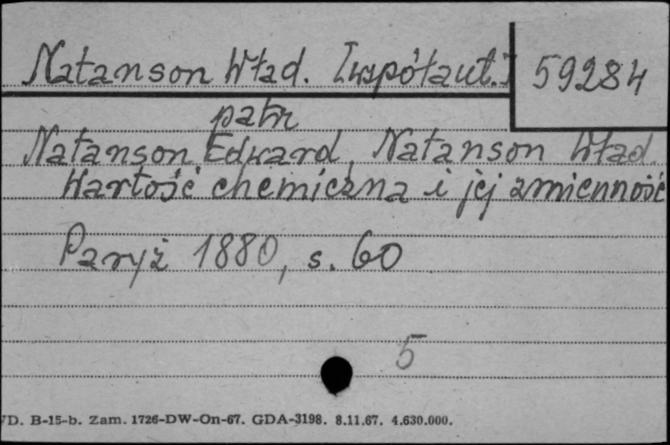 Natanson Wład. [współaut.] 59284
patrz
Natanson Edward, Natanson Wład.
Wartość chemiczna i jej zmienność
Paryż 1880, s. 60
5
D. B-15-b. Zam. 1726-DW-On-67. GDA-3198. 8.11.67. 4.630.000.